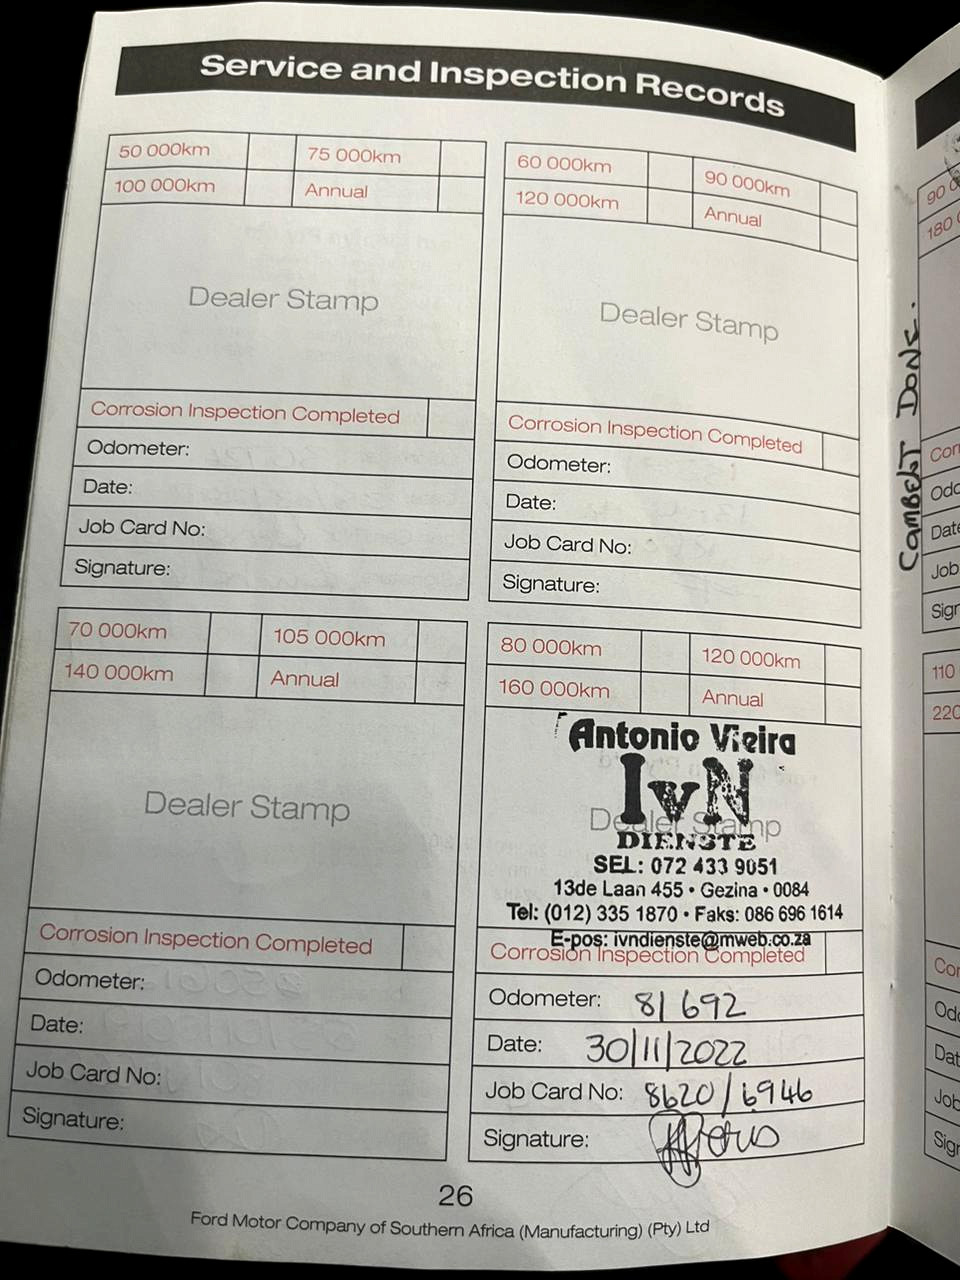 Service and Inspection Records
50 000km 75 000km
100 000km Annual
Dealer Stamp
Corrosion Inspection Completed
Odometer:
Date:
Job Card No:
Signature:
60 000km 90 000km
120 000km Annual
Dealer Stamp
Corrosion Inspection Completed
Odometer:
Date:
Job Card No:
Signature:
70 000km 105 000km
140 000km Annual
Dealer Stamp
Corrosion Inspection Completed
Odometer:
Date:
Job Card No:
Signature:
80 000km 120 000km
160 000km Annual
Antonio Vieira
IvN
Dealer Stamp
DIENSTE
SEL: 072 433 9051
13de Laan 455 • Gezina • 0084
Tel: (012) 335 1870 • Faks: 086 696 1614
E-pos: ivndienste@mweb.co.za
Corrosion Inspection Completed
Odometer: 81 692
Date: 30/11/2022
Job Card No: 8620/6946
Signature:
26
Ford Motor Company of Southern Africa (Manufacturing) (Pty) Ltd
CAMBELT DONE.
90 0
180
Cor
Odo
Date
Job
Sign
110
220
Cor
Odo
Dat
Job
Sig